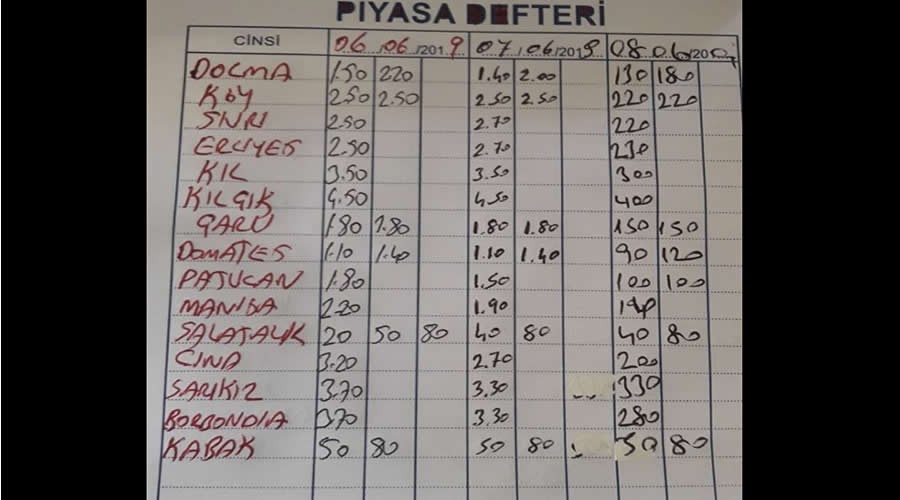 PIYASA DEFTERİ
CİNSİ 06/06/2019 07/06/2019 08 06/20
DOLMA 1.50 220 1.40 2.00 130 180
KÖY 250 2.50 2.50 2.50 220 220
SIVRI 2.50 2.70 220
ERCIYES 2.50 2.70 230
KIL 3.50 3.50 300
KILÇIK 4.50 4.50 400
1.80 1.80 1.80 1.80 150 150
DOMATES 1.10 1.40 1.10 1.40 90 120
PATLICAN 1.80 1.50 100 100
MANISA 2.20 1.90
SALATALIK 20 50 80 40 80 40 80
3.20 2.70 200
SARIKIZ 3.70 3.30 330
BORBONDIA 3.70 3.30 280
KABAK 50 80 50 80 50 80